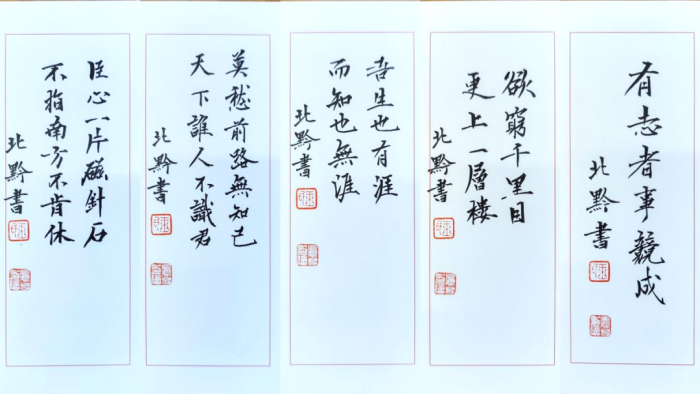 有志者事競成
北黔書
欲窮千里目
更上一層樓
北黔書
吾生也有涯
而知也無涯
北黔書
莫愁前路無知己
天下誰人不識君
北黔書
臣心一片磁針石
不指南方不肯休
北黔書